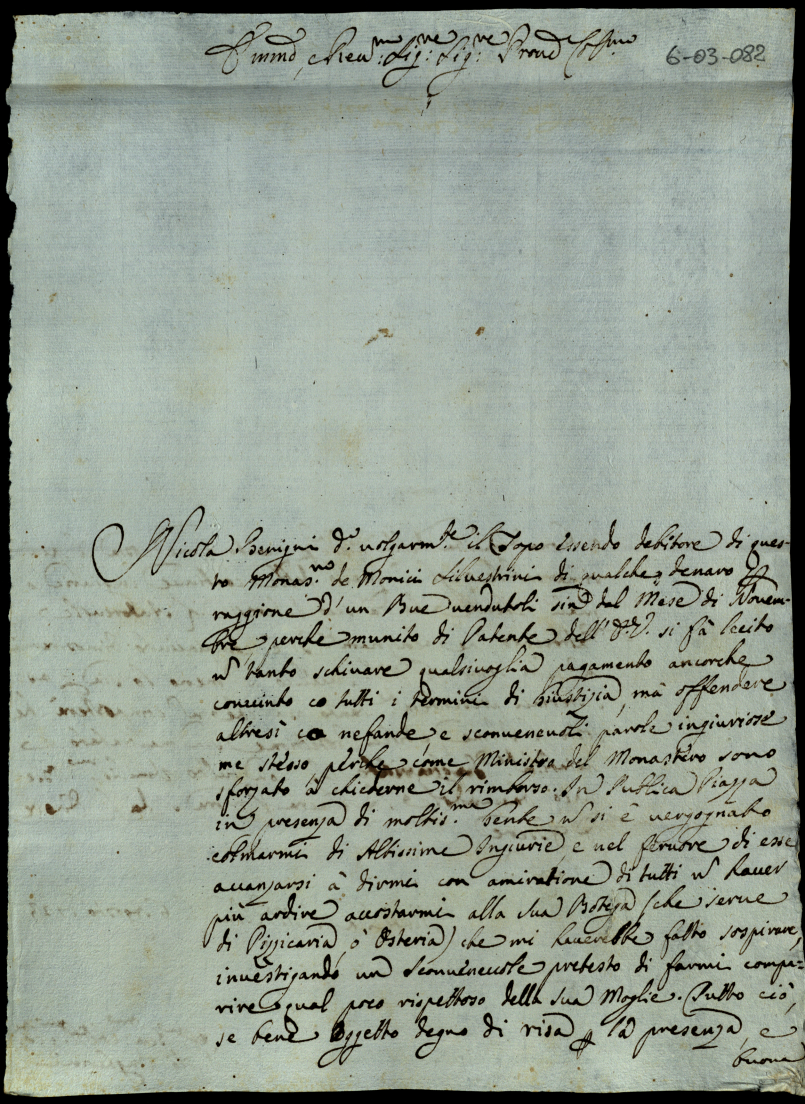 Ill.mo e Rev.mo Sig:re Sig:re Prone Col.mo
6-03-082
Nicola Benigni d.o volgarm.te il Topo essendo debitore di ques-
to Monas.ro de Monici Silvestrini di qualche denaro p
raggione d'un Bue vendutoli sin dal Mese di Novem-
bre perche munito di Patente dell' si fà lecito
n tanto schivare qualsivoglia pagamento ancorche
convinto co tutti i termini di Giustizia, mà offendere
altresì co nefande e sconvenevoli parole ingiuriose
me stesso perche come Ministro del Monastero sono
sforzato à chiederne il rimborso. In Publica Piazza
in presenza di moltis.ma Gente n si è vergognato
colmarmi di Altissime Ingiurie, e nel fervore di esse
avanzarsi à dirmi con amiratione di tutti n haver
più ardire accostarmi alla sua Botega (che serve
di Pizzicaria, ò Osteria) che mi haverebbe fatto sospirare,
investigando un sconvenevole pretesto di farmi compa=
rire qual poco rispettoso della sua Moglie. Tutto ciò,
se bene oggetto degno di risa p la presenza, e
buona